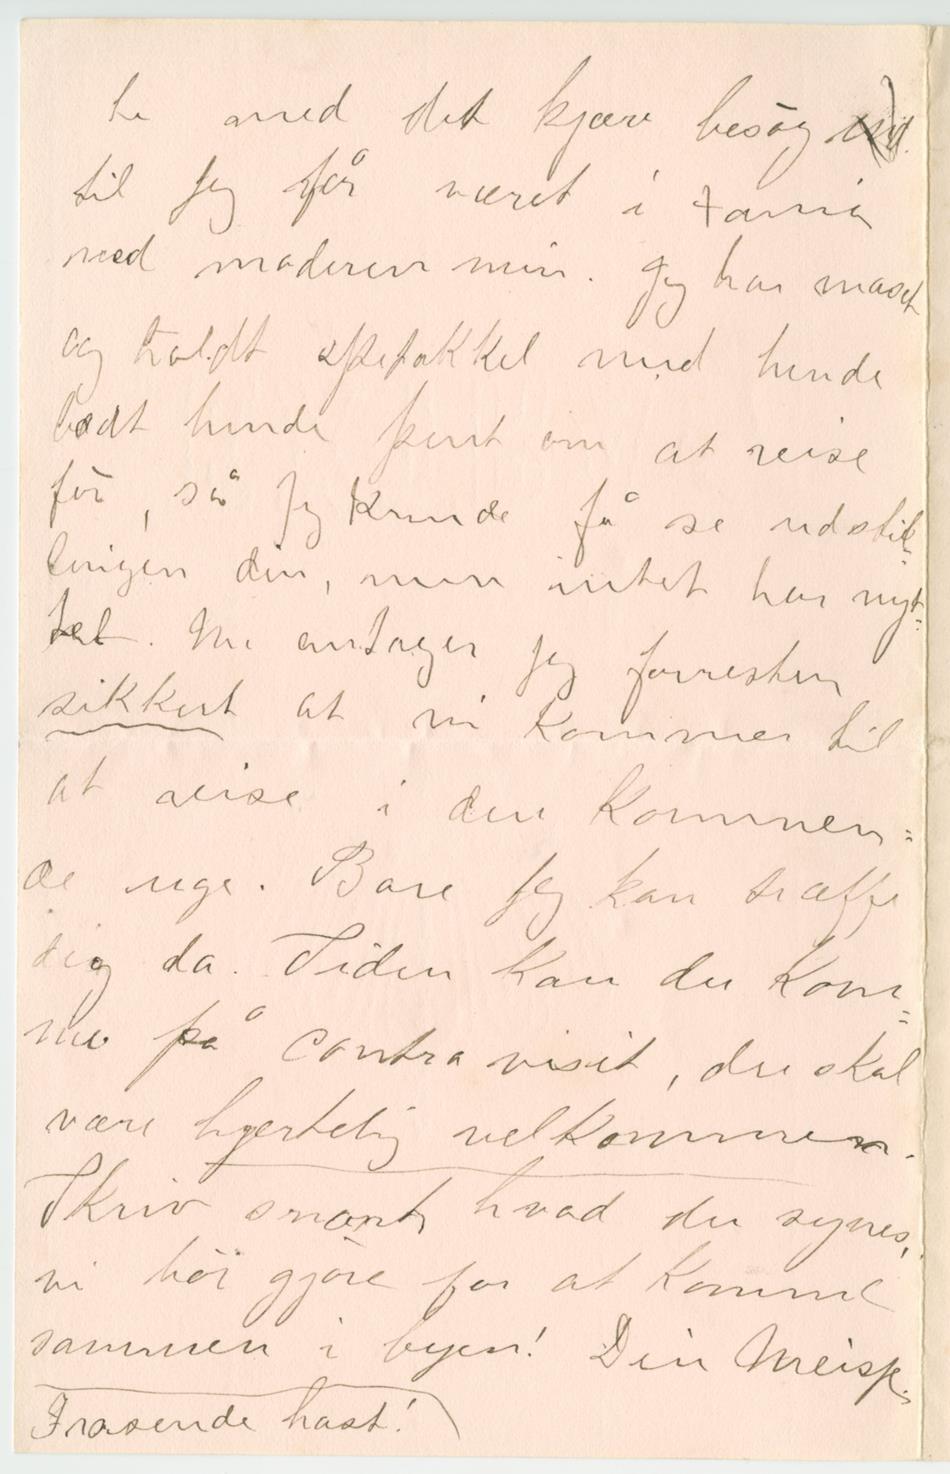 te med det kjære besøg
til jeg får været i
med moderen min. Jeg har maset
og holdt spetakkel med hende
bedt hende pent om at reise
før, så jeg kunde få se udstil-
lingen din, men intet har nyt-
tet. Nu antager jeg forresten
sikkert at vi kommer til
at reise i den kommen=
de uge. Bare jeg kan træffe
dig da. Siden kan du kom=
me på contravisit, du skal
være hjertelig velkommen.
Skriv snart hvad du synes,
vi bør gjøre for at komme
sammen i byen! Din
I rasende hast!